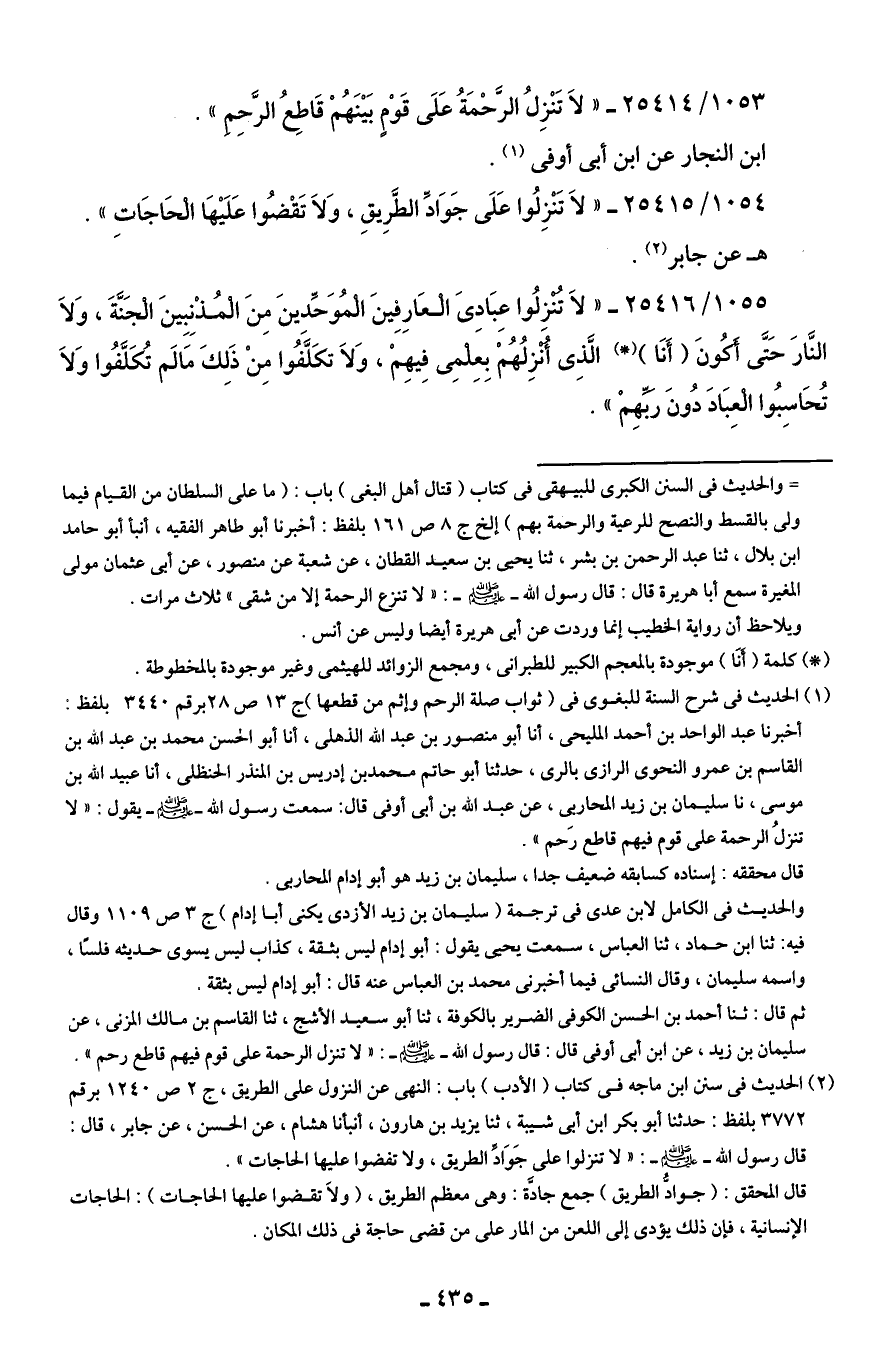 ٢٥٤١٤/١٠٥٣ ـ « لاَ تَنْزِلُ الرَّحْمَةُ عَلَى قَوْمٍ بَيْنَهُمْ قَاطِعُ الرَّحِمِ » .
ابن النجار عن ابن أبى أوفى (١) .
٢٥٤١٥/١٠٥٤ ـ « لاَ تَنْزِلُوا عَلَى جَوَادِّ الطَّرِيقِ ، وَلاَ تَقْضُوا عَلَيْهَا الْحَاجَاتِ » .
هـ عن جابر (٢) .
٢٥٤١٦/١٠٥٥ ـ « لاَ تُنْزِلُوا عِبَادِىَ الْعَارِفِينَ الْمُوَحِّدِينَ مِنَ الْمُذْنِبِينَ الْجَنَّةَ ، وَلاَ
النَّارَ حَتَّى أَكُونَ ( أَنَا )(*) الَّذِى أُنْزِلُهُمْ بِعِلْمِى فِيهِمْ ، وَلاَ تكَلَّفُوا مِنْ ذَلِكَ مَالَم تُكَلَّفُوا وَلاَ
تُحَاسِبُوا الْعِبَادَ دُونَ رَبِّهِمْ » .
= والحديث فى السنن الكبرى للبيهقى فى كتاب ( قتال أهل البغى ) باب : ( ما على السلطان من القيام فيما
ولى بالقسط والنصح للرعية والرحمة بهم ) إلخ ج ٨ ص ١٦١ بلفظ : أخبرنا أبو طاهر الفقيه ، أنبأ أبو حامد
ابن بلال ، ثنا عبد الرحمن بن بشر ، ثنا يحيى بن سعيد القطان ، عن شعبة عن منصور ، عن أبى عثمان مولى
المغيرة سمع أبا هريرة قال : قال رسول الله ـ ﷺ ـ : « لا تنزع الرحمة إلا من شقى » ثلاث مرات .
ويلاحظ أن رواية الخطيب إنما وردت عن أبى هريرة أيضا وليس عن أنس .
(*) كلمة ( أَنَا ) موجودة بالمعجم الكبير للطبرانى ، ومجمع الزوائد للهيثمى وغير موجودة بالمخطوطة .
(١) الحديث فى شرح السنة للبغوى فى ( ثواب صلة الرحم وإثم من قطعها )ج ١٣ ص ٢٨برقم ٣٤٤٠ بلفظ :
أخبرنا عبد الواحد بن أحمد المليحى ، أنا أبو منصور بن عبد الله الذهلى ، أنا أبو الحسن محمد بن عبد الله بن
القاسم بن عمرو النحوى الرازى بالرى ، حدثنا أبو حاتم محمدبن إدريس بن المنذر الحنظلى ، أنا عبيد الله بن
موسى ، نا سليمان بن زيد المحاربى ، عن عبد الله بن أبى أوفى قال: سمعت رسول الله ـ ﷺ ـ يقول : « لا
تنزلُ الرحمة على قوم فيهم قاطع رَحم » .
قال محققه : إسناده كسابقه ضعيف جدا ، سليمان بن زيد هو أبو إدام المحاربى .
والحديث فى الكامل لابن عدى فى ترجمة ( سليمان بن زيد الأزدى يكنى أبا إدام ) ج ٣ ص ١١٠٩ وقال
فيه: ثنا ابن حماد ، ثنا العباس ، سمعت يحيى يقول : أبو إدام ليس بثقة ، كذاب ليس يسوى حديثه فلسًا ،
واسمه سليمان ، وقال النسائى فيما أخبرنى محمد بن العباس عنه قال : أبو إدام ليس بثقة .
ثم قال : ثنا أحمد بن الحسن الكوفى الضرير بالكوفة ، ثنا أبو سعيد الأشج ، ثنا القاسم بن مالك المزنى ، عن
سليمان بن زيد ، عن ابن أبى أوفى قال : قال رسول الله ـ ﷺ ـ : « لا تنزل الرحمة على قوم فيهم قاطع رحم » .
(٢) الحديث فى سنن ابن ماجه فى كتاب ( الأدب ) باب : النهى عن النزول على الطريق ، ج ٢ ص ١٢٤٠ برقم
٣٧٧٢ بلفظ : حدثنا أبو بكر ابن أبى شيبة ، ثنا يزيد بن هارون ، أنبأنا هشام ، عن الحسن ، عن جابر ، قال :
قال رسول الله ـ ﷺ ـ : « لا تنزلوا على جَوَادِّ الطريق ، ولا تفضوا عليها الحاجات » .
قال المحقق : ( جوادُّ الطريق ) جمع جادَّة : وهى معظم الطريق ، ( ولاَ تقضوا عليها الحاجات ) : الحاجات
الإنسانية ، فإن ذلك يؤدى إلى اللعن من المار على من قضى حاجة فى ذلك المكان .
ـ ٤٣٥ ـ